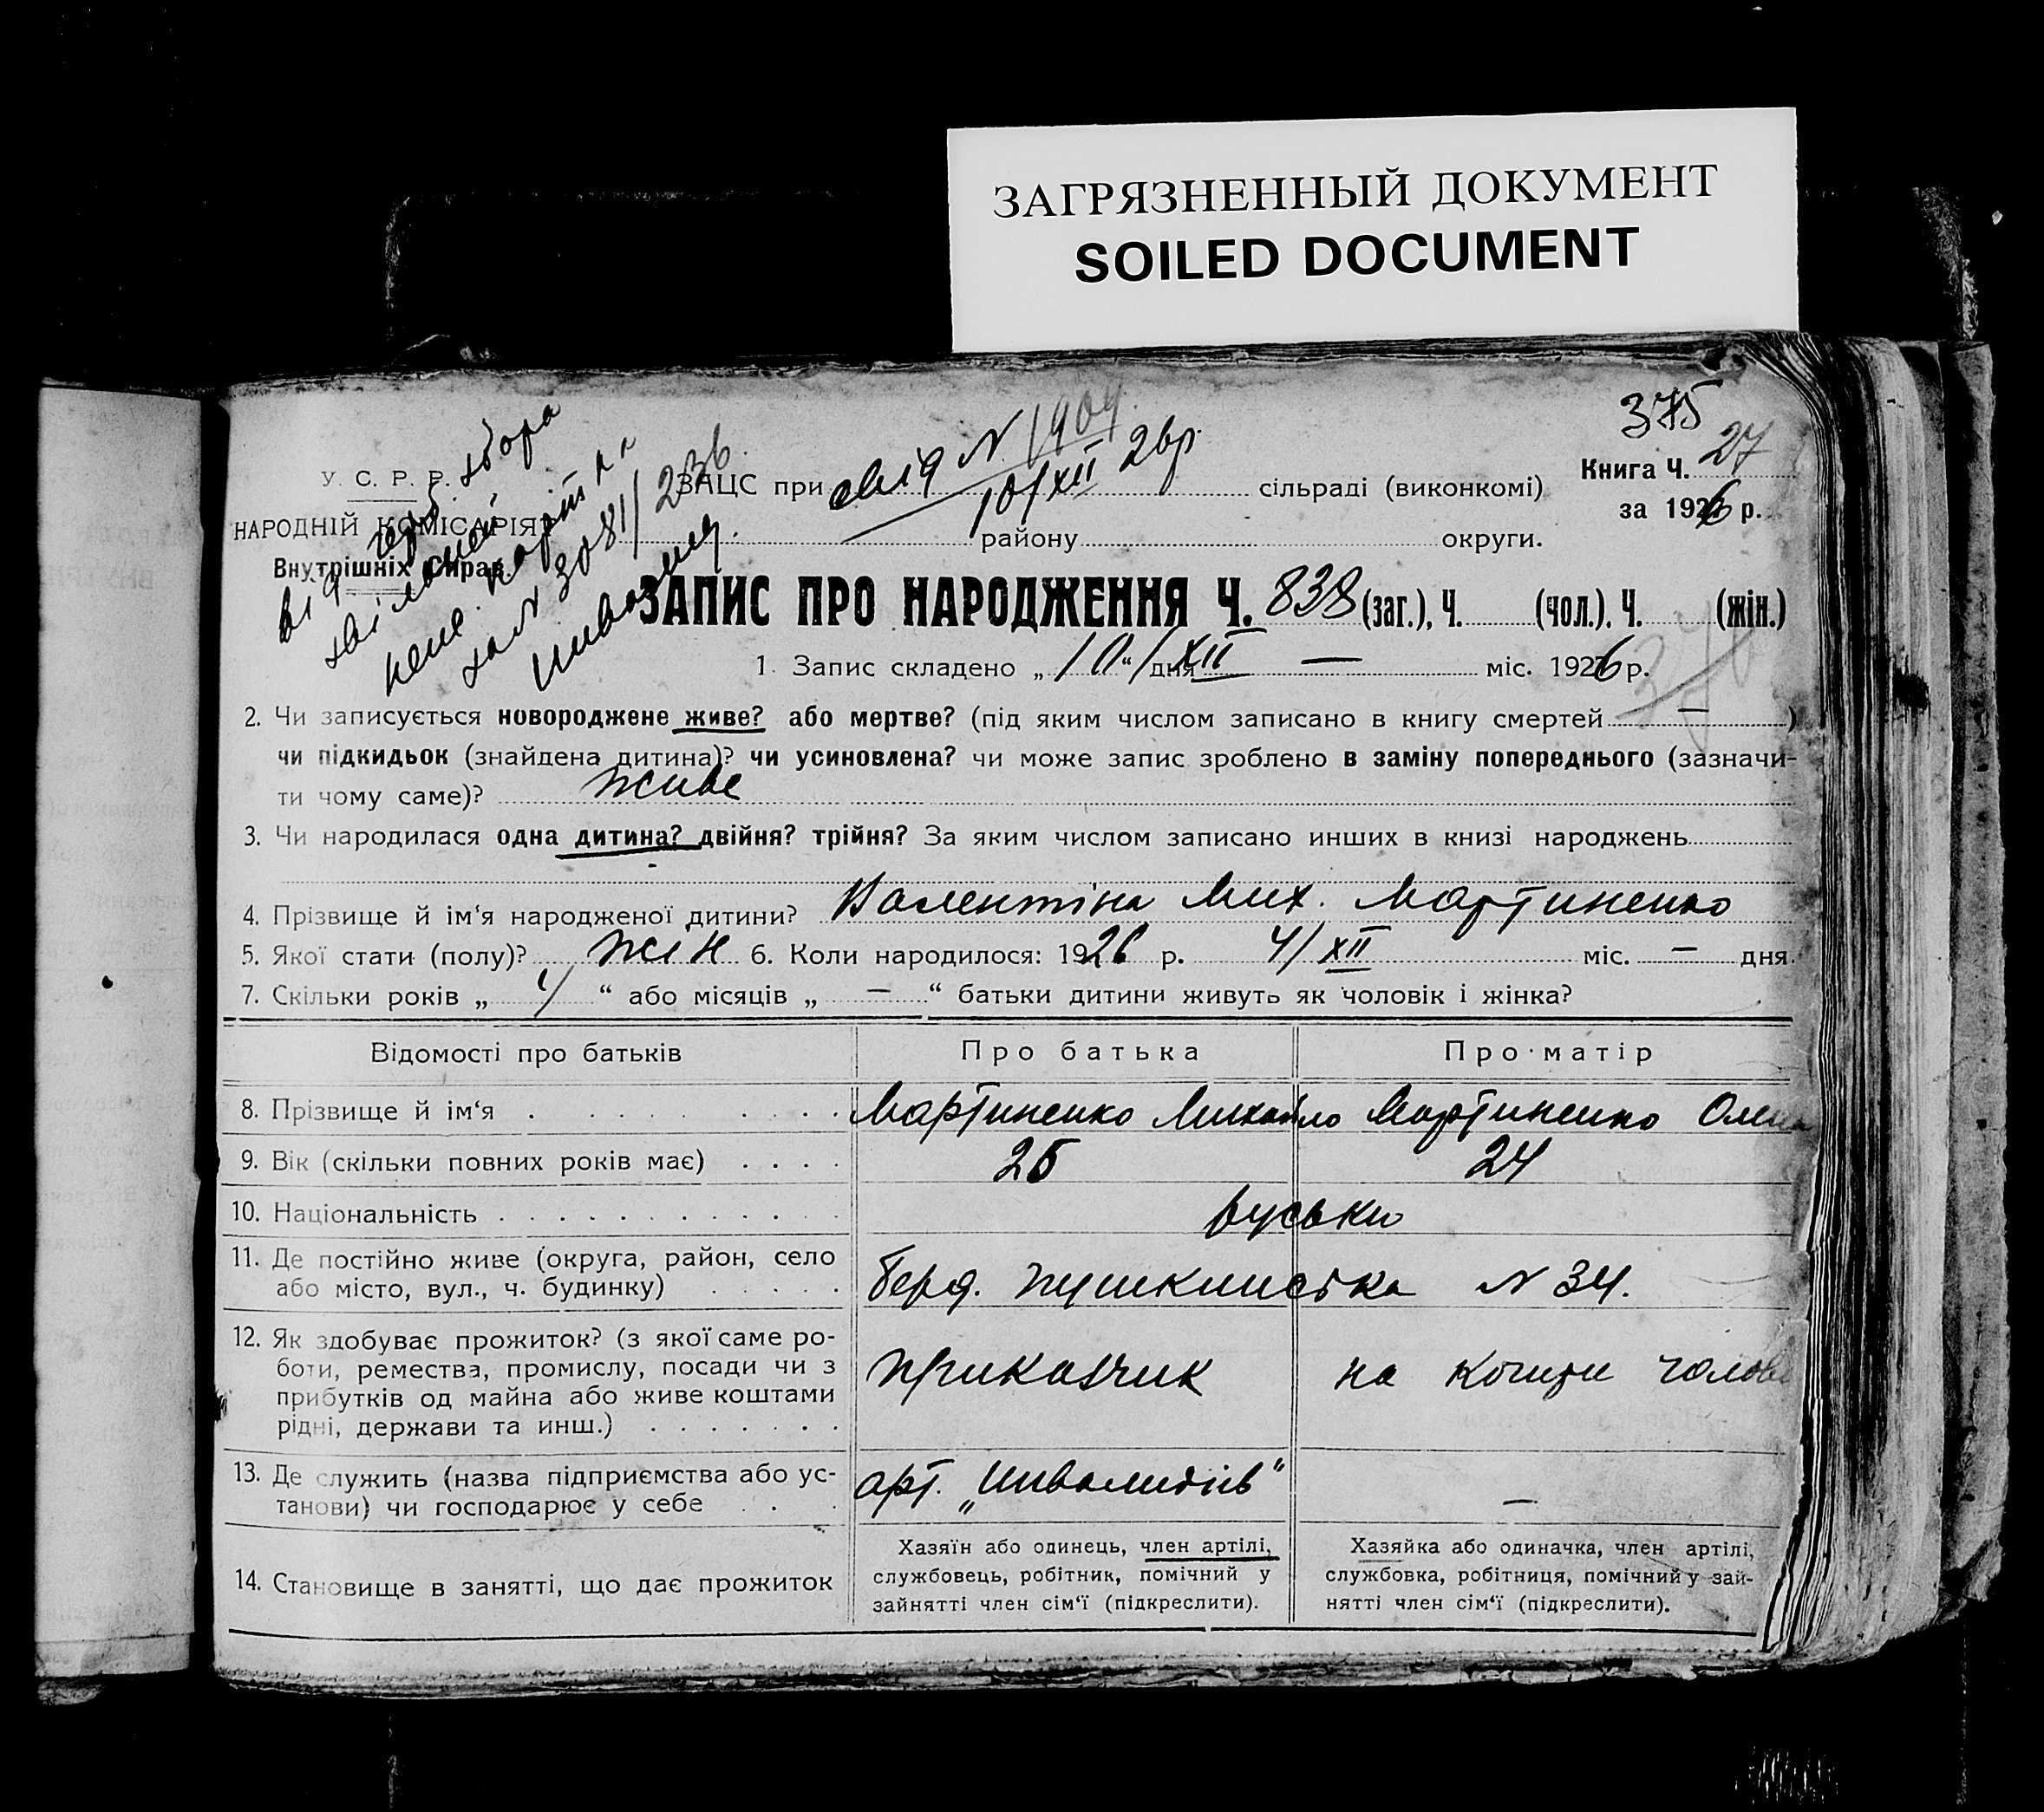 ЗАГРЯЗНЕННЫЙ ДОКУМЕНТ
SOILED DOCUMENT
375
У. С. Р. Р.
НАРОДНІЙ КОМІСАРІЯТ
Внутрішніх Справ
від герб. збора
звільнені
зал № 3081/236.
ЗАЦС при свід N 1904 10/XII 26р. сільраді (виконкомі)
Книга Ч. 27
за 1926 р.
району округи.
ЗАПИС ПРО НАРОДЖЕННЯ Ч. 838 (заг.), Ч. (чол.). Ч. (жін.)
1. Запис складено „10“/ дня XII — міс. 1926 р.
2. Чи записується новороджене живе? або мертве? (під яким числом записано в книгу смертей — )
чи підкидьок (знайдена дитина)? чи усиновлена? чи може запис зроблено в заміну попереднього (зазначи-
ти чому саме)? живе
3. Чи народилася одна дитина? двійня? трійня? За яким числом записано инших в книзі народжень
4. Прізвище й ім‘я народженої дитини? Валентіна Мих. Мартиненко
5. Якої стати (полу)? жін 6. Коли народилося: 1926 р. 4/XII міс. — дня
7. Скільки років „ 4 “ або місяців „ — “ батьки дитини живуть як чоловік і жінка?
Відомості про батьків Про батька Про матір
8. Прізвище й ім‘я Мартиненко Михайло Мартиненко Олена
9. Вік (скільки повних років має) 25 24
10. Національність руськи
11. Де постійно живе (округа, район, село
або місто, вул., ч. будинку) Берд. Пушкинська N 34.
12. Як здобуває прожиток? (з якої саме ро-
боти, ремества, промислу, посади чи з
прибутків од майна або живе коштами
рідні, держави та инш.) приказчик на кошти чолові
13. Де служить (назва підприємства або ус-
танови) чи господарює у себе арт. „Инвалидів“ —
14. Становище в занятті, що дає прожиток
Хазяїн або одинець, член артілі,
службовець, робітник, помічний у
зайнятті член сім‘ї (підкреслити).
Хазяйка або одиначка, член артілі,
службовка, робітниця, помічний у зай-
нятті член сім‘ї (підкреслити).